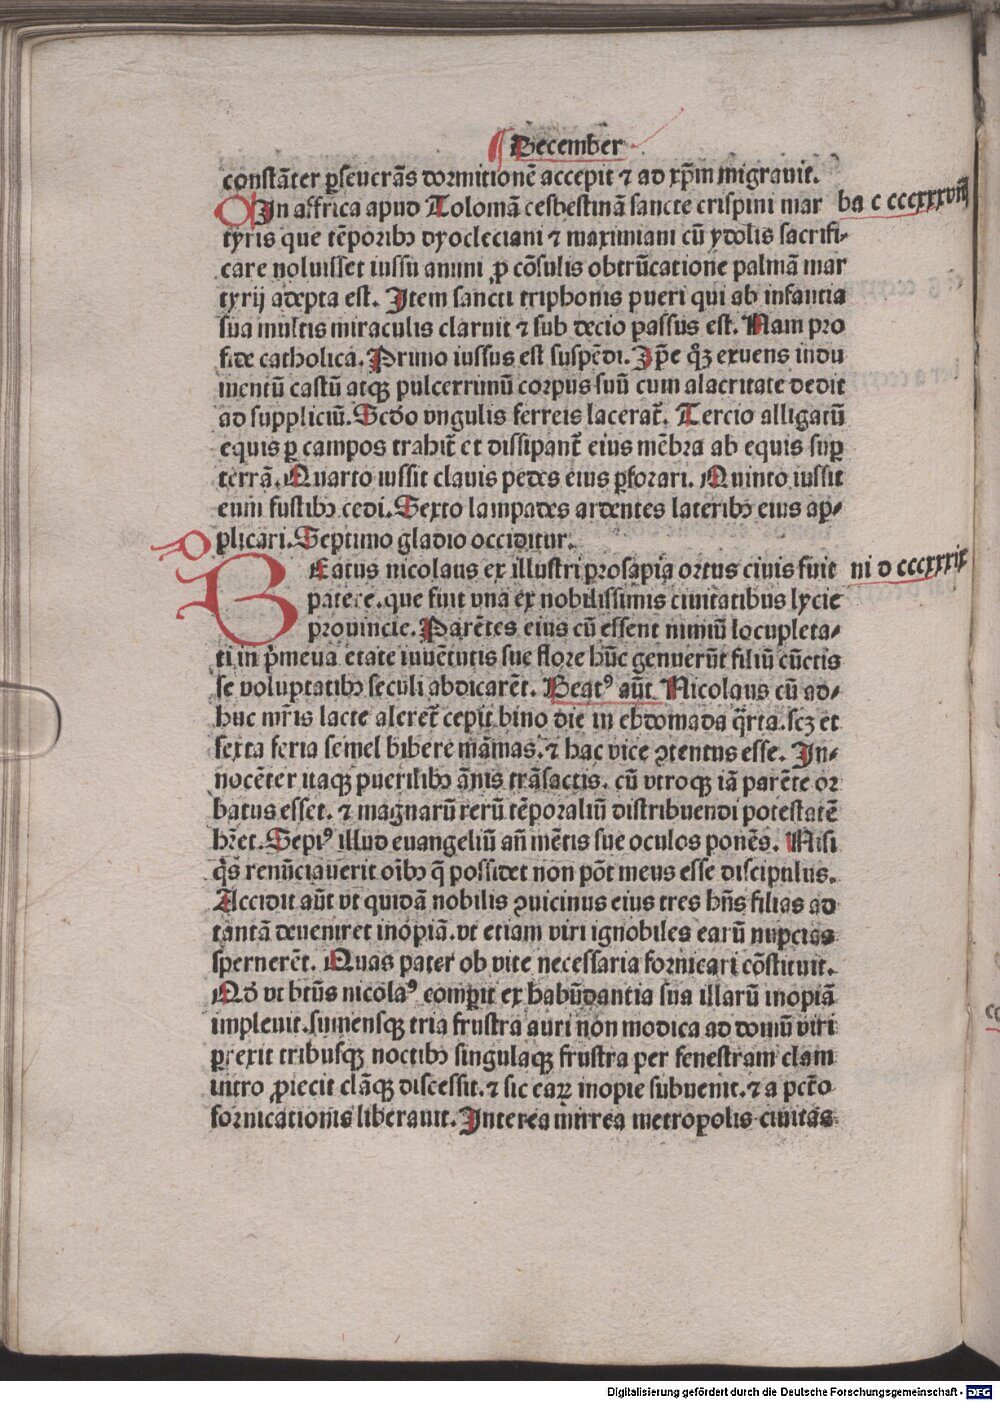 December
constāter ꝑseuerās dormitionē accepit ⁊ ad xp̄m migrauit.
In affrica apud Tolomā cesbestinā sancte crispini mar
ba c cccxxxviij
tyris que tēporibꝰ dyocleciani ⁊ maximiani cū ydolis sacrifi-
care noluisset iussu anuni ꝓ cōsulis obtrūcatione palmā mar
tyrij adepta est. Item sancti triphonis pueri qui ab infantia
sua multis miraculis claruit ⁊ sub decio passus est. Nam pro
fide catholica. Primo iussus est suspēdi. Ip̄e qꝫ exuens indu
mentū castū atqꝫ pulcerrimū corpus suū cum alacritate dedit
ad suppliciū. Scd̄o vngulis ferreis lacerat̄. Tercio alligatū
equis ꝑ campos trahit̄ et dissipant̄ eius mēbra ab equis suꝑ
terrā. Quarto iussit clauis pedes eius ꝑforari. Quinto iussit
eum fustibꝰ cedi. Sexto lampades ardentes lateribꝰ eius ap-
plicari. Septimo gladio occiditur.
BEatus nicolaus ex illustri prosapia ortus ciuis fuit
ni d cccxxxix
patere. que fuit vna ex nobilissimis ciuitatibus lycie
prouincie. Parētes eius cū essent nimiū locupleta-
ti in p̄meua etate iuuētutis sue flore hūc genuerūt filiū cūctis
se voluptatibꝰ seculi abdicarēt. Beatꝰ aūt Nicolaus cū ad-
huc mr̄is lacte aleret̄ cepit bino die in ebdomada q̄rta. scꝫ et
sexta feria semel bibere māmas. ⁊ hac vice ꝯtentus esse. In-
nocēter itaqꝫ puerilibꝰ ānis trāsactis. cū vtroqꝫ iā parēte or
batus esset. ⁊ magnarū rerū tēporaliū distribuendi potestatē
hr̄et. Sepiꝰ illud euangeliū an̄ mētis sue oculos ponēs. Nisi
q̄s renūciauerit oībꝰ q̄ possidet non pōt meus esse discipulus.
Accidit aūt vt quidā nobilis ꝯuicinus eius tres hn̄s filias ad
tantā deueniret inopiā. vt etiam viri ignobiles earū nupcias
spernerēt. Quas pater ob vite necessaria fornicari cōstituit.
Qd̄ vt btūs nicolaꝰ comꝑit ex habūdantia sua illarū inopiā
impleuit. sumensqꝫ tria frustra auri non modica ad domū viri
ꝑrexit tribusqꝫ noctibꝰ singulaqꝫ frustra per fenestram clam
intro ꝓiecit clāqꝫ discessit. ⁊ sic eaꝝ inopie subuenit. ⁊ a pct̄o
fornicationis liberauit. Interea mirrea metropolis ciuitas
Digitalisierung gefördert durch die Deutsche Forschungsgemeinschaft - DFG